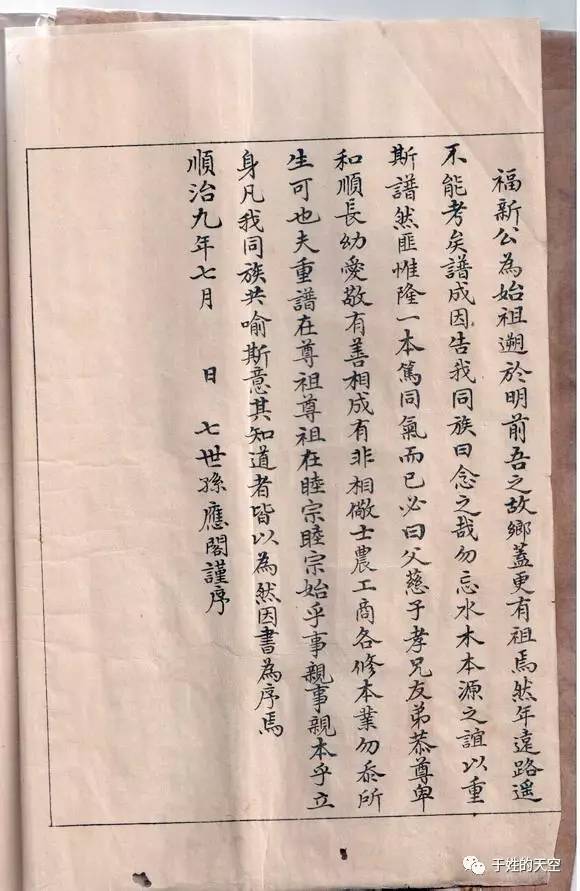 福新公為始祖遡於明前吾之故鄉蓋更有祖焉然年遠路遥
不能考矣譜成因告我同族曰念之哉勿忘水木本源之誼以重
斯譜然匪惟隆一本篤同氣而已必曰父慈子孝兄友弟恭尊卑
和順長幼愛敬有善相成有非相儆士農工商各修本業勿忝所
生可也夫重譜在尊祖尊祖在睦宗睦宗始乎事親事親本乎立
身凡我同族共喻斯意其知道者皆以為然因書為序焉
順治九年七月 日 七世孫應閣謹序
于姓的天空